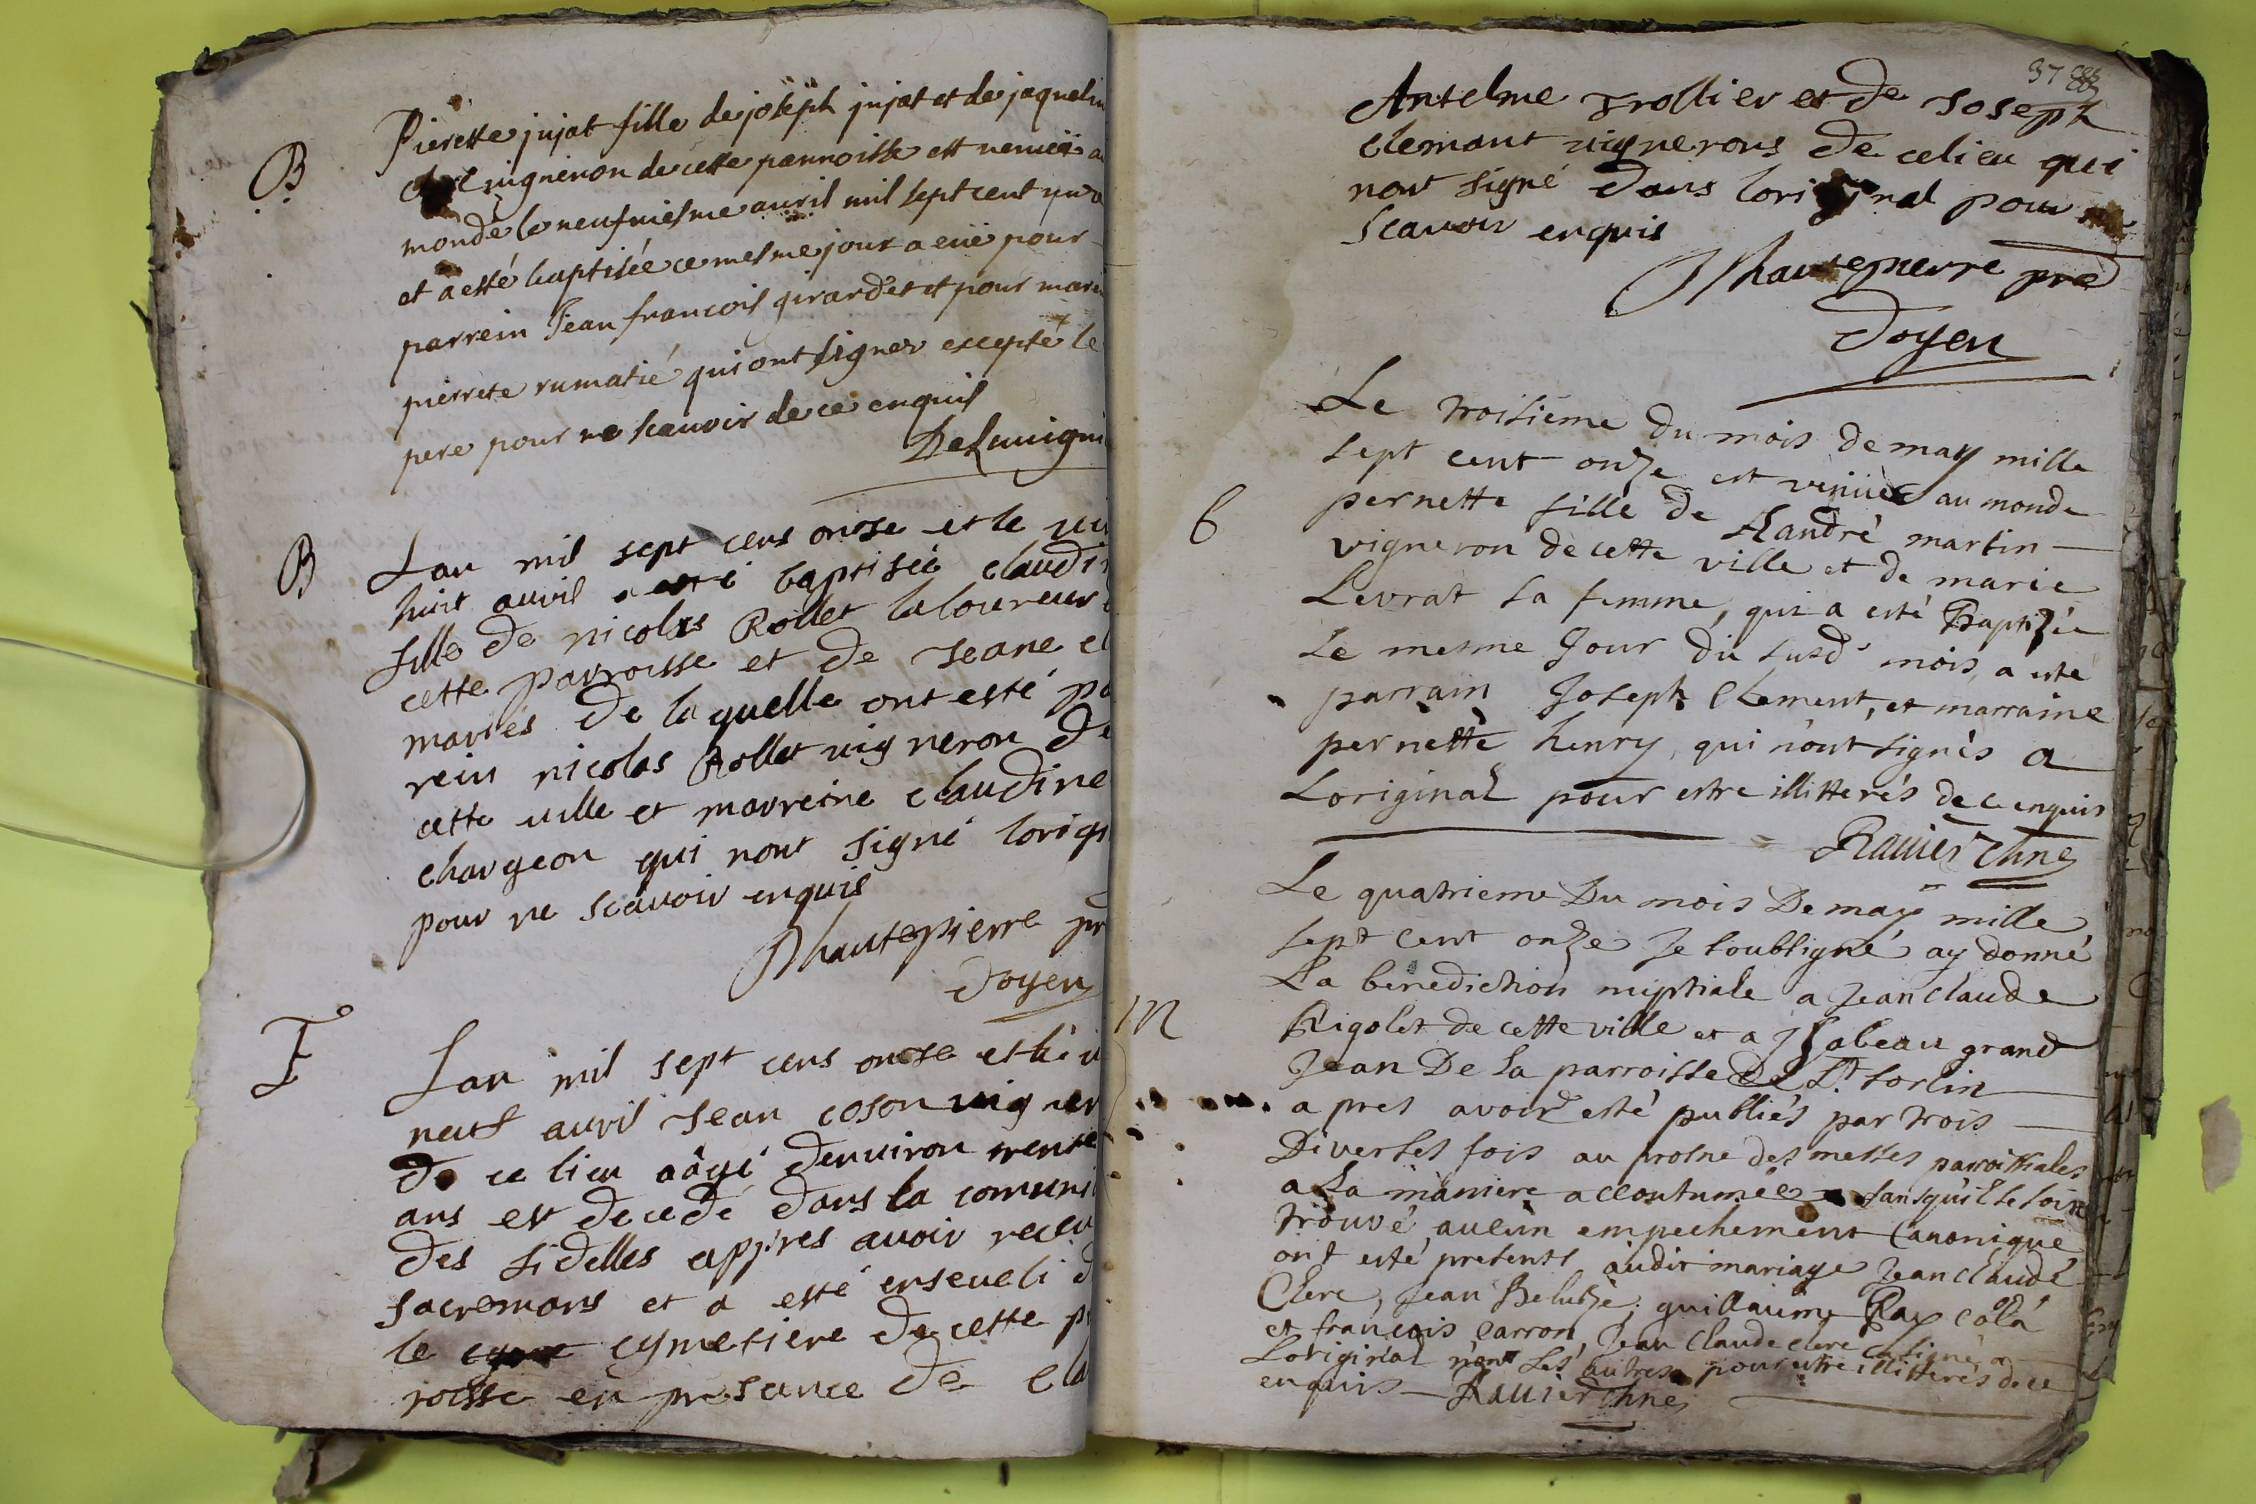 B
Pierette jujat fille de joseph jujat et de jaquelin
vigneron de cette parroisse est venüe au
monde le neufviesme auril mil sept cent
et a esté baptisée ce mesme jour a eüe pour
parrein Jean francois girardet et pour mare
pierrete rumatié qui ont signer excepté le
pere pour ne scauoir de ce enquis
B
Lan mil sept cens onse et le
huit auril a esté baptisée claudi
fille de nicolas Rollet laboureur
cette parroisse et de Jeane
mariés de laquelle ont esté pa
rein nicolas Rollet uigneron de
cette uille et marreine claudine
chargeon qui nont signé lorig
pour ne scauoir enquis
Dhautepierre pr
Doyen
F
Lan mil sept cens onse et le
neuf auril Jean coson uigner
de ce lieu aâgé denuiron trente
ans est decedé dans la comuni
des fidelles appres auoir receu
sacremans et a esté enseueli d
le cymetiere de cette p
roisse en presance de cla
37
Antelme trollier et de Joseph
clemant uignerons de ce lieu qui
nont signé dans loriginal pour ne
scauoir enquis
Dhautepierre pre
Doyen
6
Le troisième du mois de may mille
sept cent onze est venüe au monde
pernette fille de André martin
vigneron de cette ville et de marie
Levrat sa femme, qui a esté Baptizée
Le mesme Jour du susd. mois, a esté
parrain Joseph Clement, et marraine
pernette henry, qui n'ont signés a
Loriginal pour estre illitterés de ce enquis
Rauier chne
m
Le quatrieme Du mois De may mille
sept cent onze Je soubsigné ay donné
La benediction nuptiale a Jean Claude
Rigolet de cette ville et a Isabeau grand
Jean De La parroisse De St. Sorlin
apres avoir esté publiés par trois
Diverses fois au prosne des messes parroissiales
a La manière accoutumée sans qu'il se soit
trouvé aucun empechement Canonique
ont esté presents audit mariage Jean Claude
Clerc, Jean guillaume
et françois carron, Jean Claude clerc a signé a
Loriginal non Les autres pour estre illitterés de ce
enquis Rauier chne